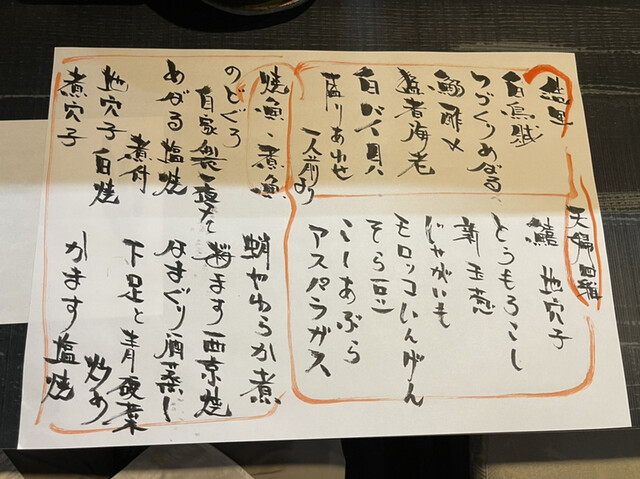 白鳥賊
つぶくりめばる
鰯酢〆
猛者海老
白バイ貝
盛りあわせ
一人前より
天婦羅
鱚 地穴子
とうもろこし
新玉葱
じゃがいも
モロッコいんげん
そら豆
こしあぶら
アスパラガス
焼魚、煮魚
のどぐろ
自家製一夜干し
めばる塩焼
煮付
地穴子白焼
煮穴子
蛸やわらか煮
桜ます西京焼
はまぐり酒蒸し
下足と青硬菜
炒め
かます塩焼